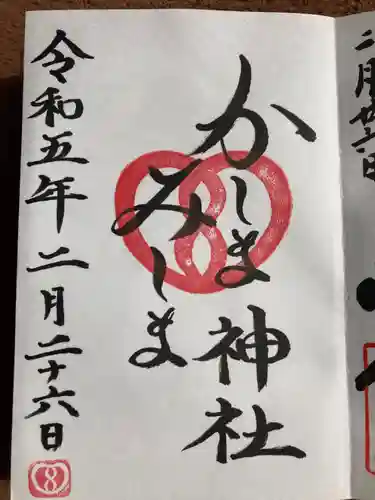 二月廿六日
かしま神社
みしま
令和五年二月二十六日